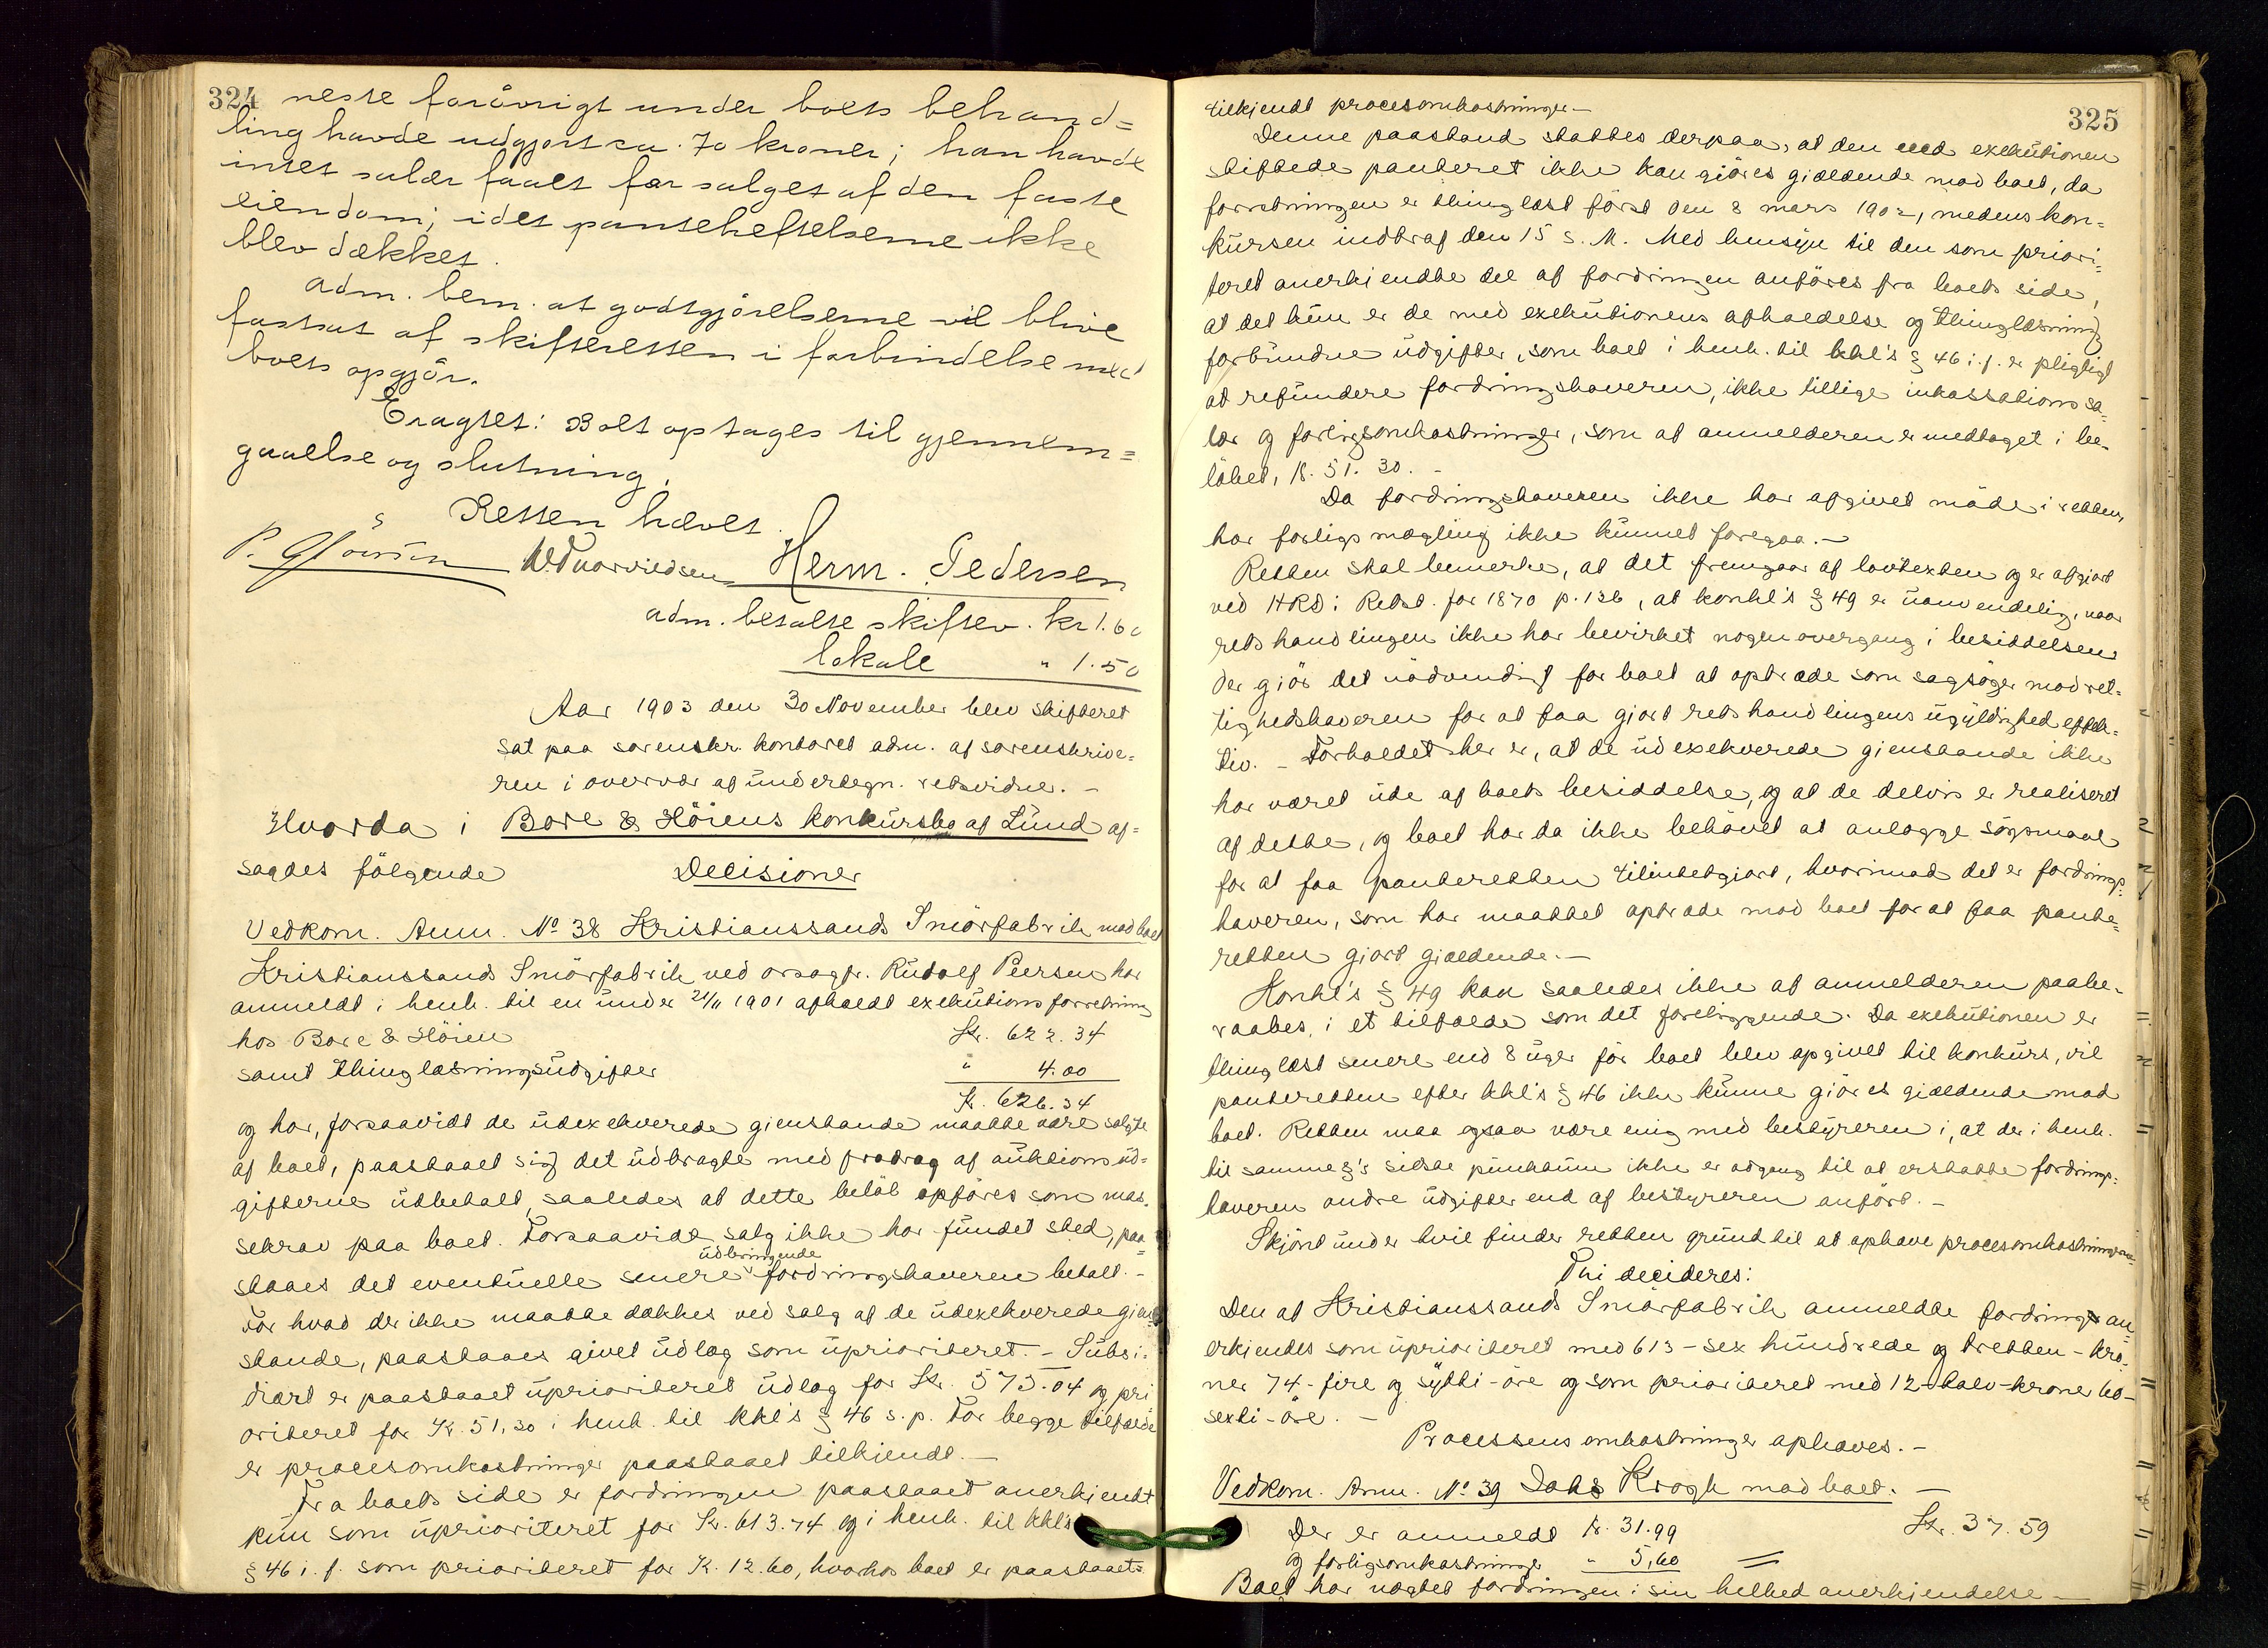 324 neste forøvrigt under boets behand=
ling havde udgjort ca. 70 kroner; han havde
intet salær faaet for salget af den faste
eiendom; idet panteheftelserne ikke
blev dækket.
Adm. bem. at godtgjørelserne vil blive
fastsat af skifteretten i forbindelse med
boets opgjör.
Eragtet: Boet optages til gjennem=
gaaelse og slutning.
Retten hævet.
Herm. Pedersen
adm. betalte skiftev. kr 1.60
lokale " 1.50
Aar 1903 den 30 November blev skifteret
sat paa sorenskr. kontoret adm. af sorenskrive=
ren i overvær af undertegn. retsvidne. –
Hvorda i Bore & Höiens konkursbo af Lund af=
sagdes fölgende Decisioner
Vedkom. Anm. No 38 Kristianssands Smörfabrik mod boet
Kristianssands Smörfabrik ved orsagfr. Rudolf Peersen har
anmeldt i henh. til en under 21/11 1901 afholdt exekutionsforretning
hos Bore & Höien Kr. 622.34
samt thinglæsningsudgifter " 4.00
Kr. 626.34
og har, forsaavidt de udexekverede gjenstande maatte være solgte
af boet, paastaaet sig det udbragte med fradrag af auktionsud=
gifterne udbetalt, saaledes at dette belöb opföres som mas=
sekrav paa boet. Forsaavidt salg ikke har fundet sted, paa=
staaes det eventuelle senere udbringende fordringshaveren betalt. –
For hvad der ikke maatte dækkes ved salg af de udexekverede gjen=
stande, paastaaes givet udlæg som uprioriteret. – Subsi=
diært er paastaaet uprioriteret udlæg for Kr. 575.04 og pri
oriteret for Kr. 51,30 i henh. til kkl's § 46 s.p. For begge tilfælde
er procesomkostninger paastaaet tilkjendt. –
Fra boets side er fordringen paastaaet anerkjendt
kun som uprioriteret for Kr. 613.74 og i henh. til kkl's
§ 46 i.f. som prioriteret for K. 12.60, hvorhos boet er paastaaet
325
tilkjendt procesomkostninger –
Denne paastand støttes derpaa, at den ved exekutionen
stiftede panteret ikke kan gjöres gjældende mod boet, da
forretningen er thinglæst först den 8 mars 1902, medens kon=
kursen indtraf den 15 s. M. Med hensyn til den som priori=
teret anerkjendte del af fordringen anföres fra boets side,
at det kun er de med exekutionens afholdelse og thinglæsning
forbundne udgifter, som boet i henh. til kkl's § 46 i.f. er pligtigt
at refundere fordringshaveren, ikke tillige inkassationssa=
lær og forligsomkostninger, som af anmelderen er medtaget i be=
löbet, K. 51.30. –
Da fordringshaveren ikke har afgivet möde i retten,
har forligsmægling ikke kunnet foregaa. –
Retten skal bemerke, at det fremgaar af lovtexten og er afgjort
ved HRD i Retst. for 1870 p. 136, at konkl's § 49 er uanvendelig, naar
retshandlingen ikke har bevirket nogen overgang i besiddelsen
der gjör det nödvendigt for boet at optræde som sagsöger mod ret=
tighedshaveren for at faa gjort retshandlingens ugyldighed effek=
tiv. – Forholdet her er, at de udexekverede gjenstande ikke
har været ude af boets besiddelse, og at de delvis er realiseret
af dette, og boet har da ikke behövet at anlægge sögsmaal
for at faa panteretten tilintetgjort, hvorimod det er fordrings=
haveren, som har maattet optræde mod boet for at faa pante=
retten gjort gjældende. –
Konkl's § 49 kan saaledes ikke af anmelderen paabe=
raabes i et tilfælde som det foreliggende. Da exekutionen er
thinglæst senere end 8 uger för boet blev opgivet til konkurs, vil
panteretten efter kkl's § 46 ikke kunne gjöres gjældende mod
boet. Retten maa ogsaa være enig med bestyreren i, at der i henh.
til samme §'s sidste punktum ikke er adgang til at erstatte fordrings=
haveren andre udgifter end af bestyreren anfört. –
Skjönt under tvil finder retten grund til at ophæve procesomkostningerne.
Thi decideres:
Den af Kristianssands Smörfabrik anmeldte fordring an=
erkjendes som uprioriteret med 613 – sex hundrede og tretten – kro=
ner 74 – fire og sytti – öre og som prioriteret med 12 – tolv – kroner 60 –
sexti – öre. –
Processens omkostninger ophæves. –
Vedkom. Anm. No 39 Krogh mod boet. –
Der er anmeldt Kr. 31.99 Kr. 37.59
og forligsomkostninger " 5,60
Boet har nægtet fordringen i sin helhed anerkjendelse –